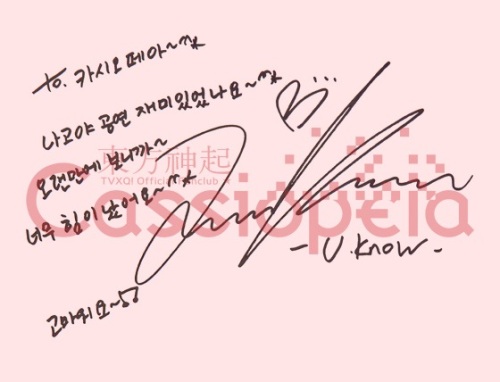 to. 카시오페아~^^*
나고야 공연 재미있었나요~^^*
오랜만에 보니까~
너무 힘이 났어요~^^*
고마워요~
-U.Know-
東方神起
TVXQ! Official Fanclub
Cassiopeia